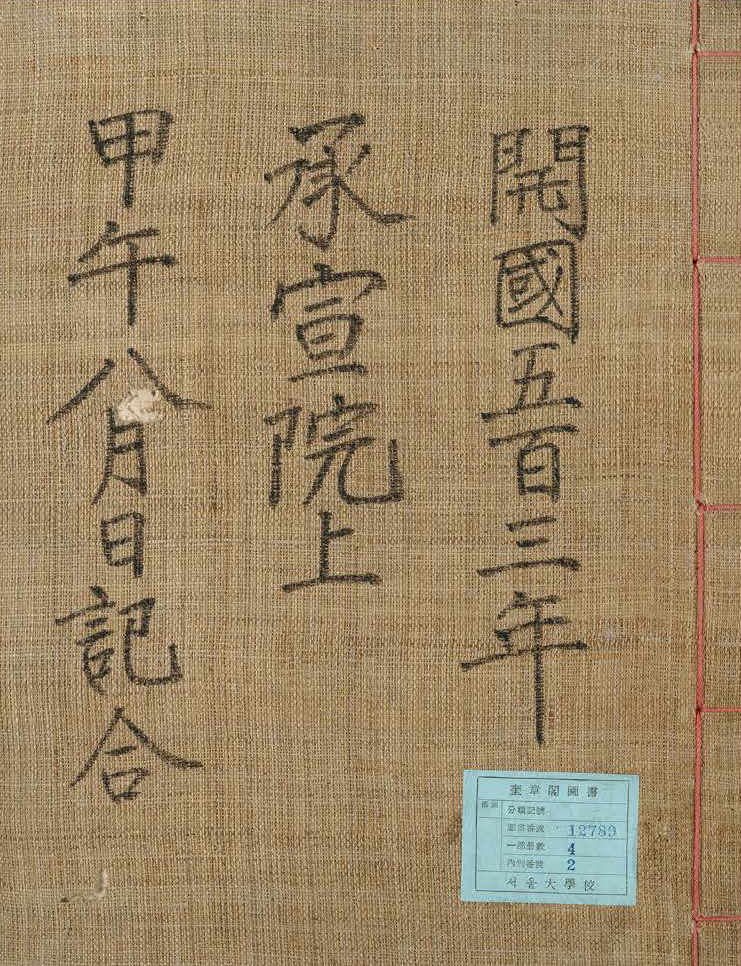 開國五百三年
承宣院上
甲午八月日記合
奎章閣圖書
番號
分類記號
圖書番號 12789
一部册數 4
內何番號 2
서울大學校